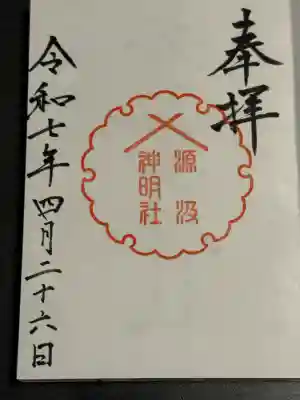 奉拝
源汲
神明社
令和七年四月二十六日